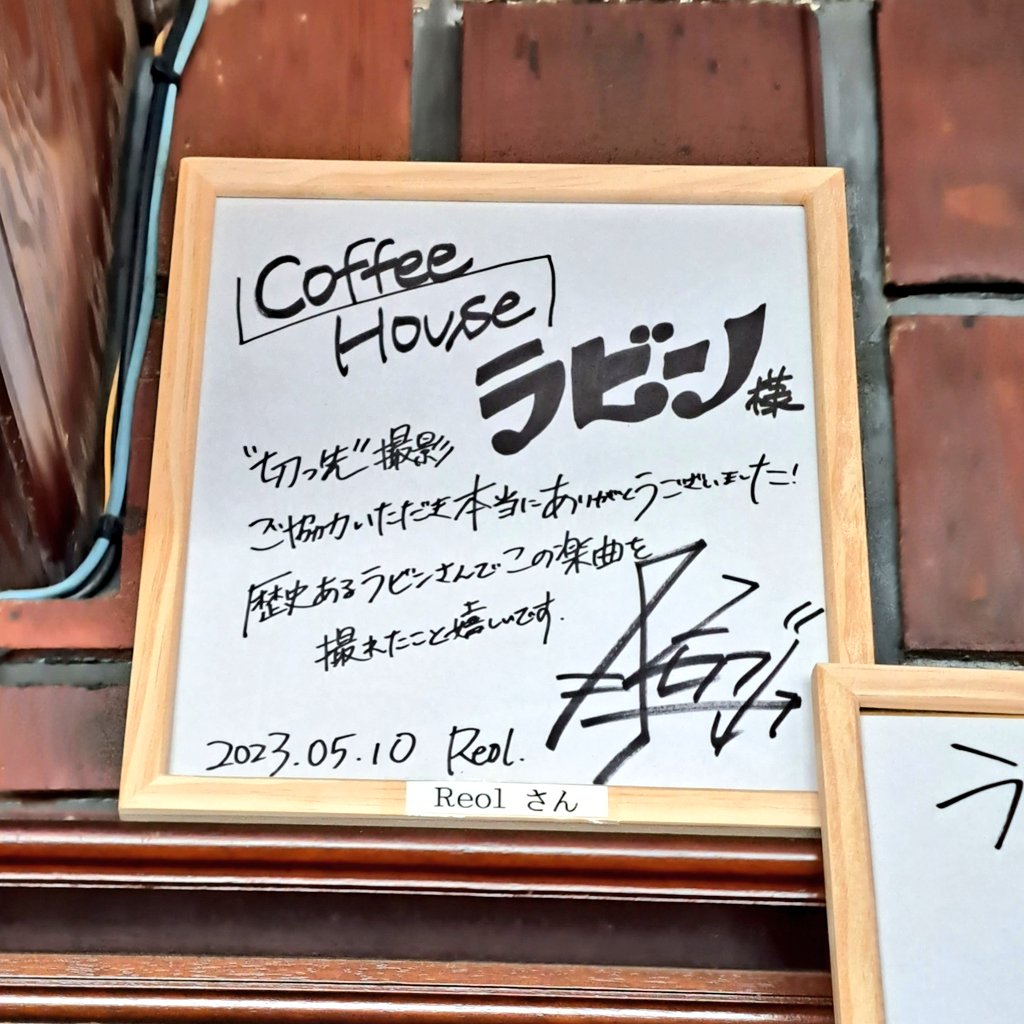 Coffee
House
ラビン様
"切っ先"撮影
ご協力いただき本当にありがとうございました!
歴史あるラビンさんでこの楽曲を
撮れたこと嬉しいです.
2023.05.10 Reol.
Reol さん
ラ